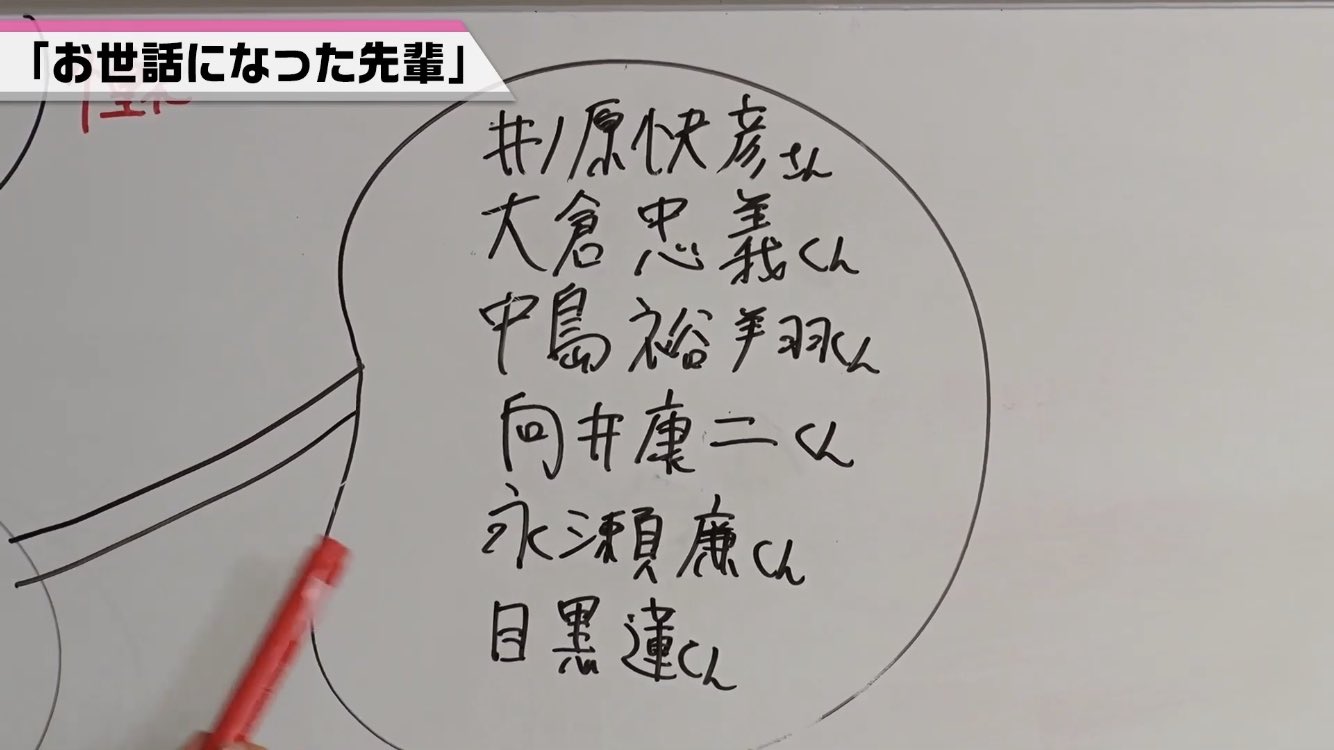 「お世話になった先輩」
井ノ原快彦さん
大倉忠義くん
中島裕翔くん
向井康二くん
永瀬廉くん
目黒蓮くん